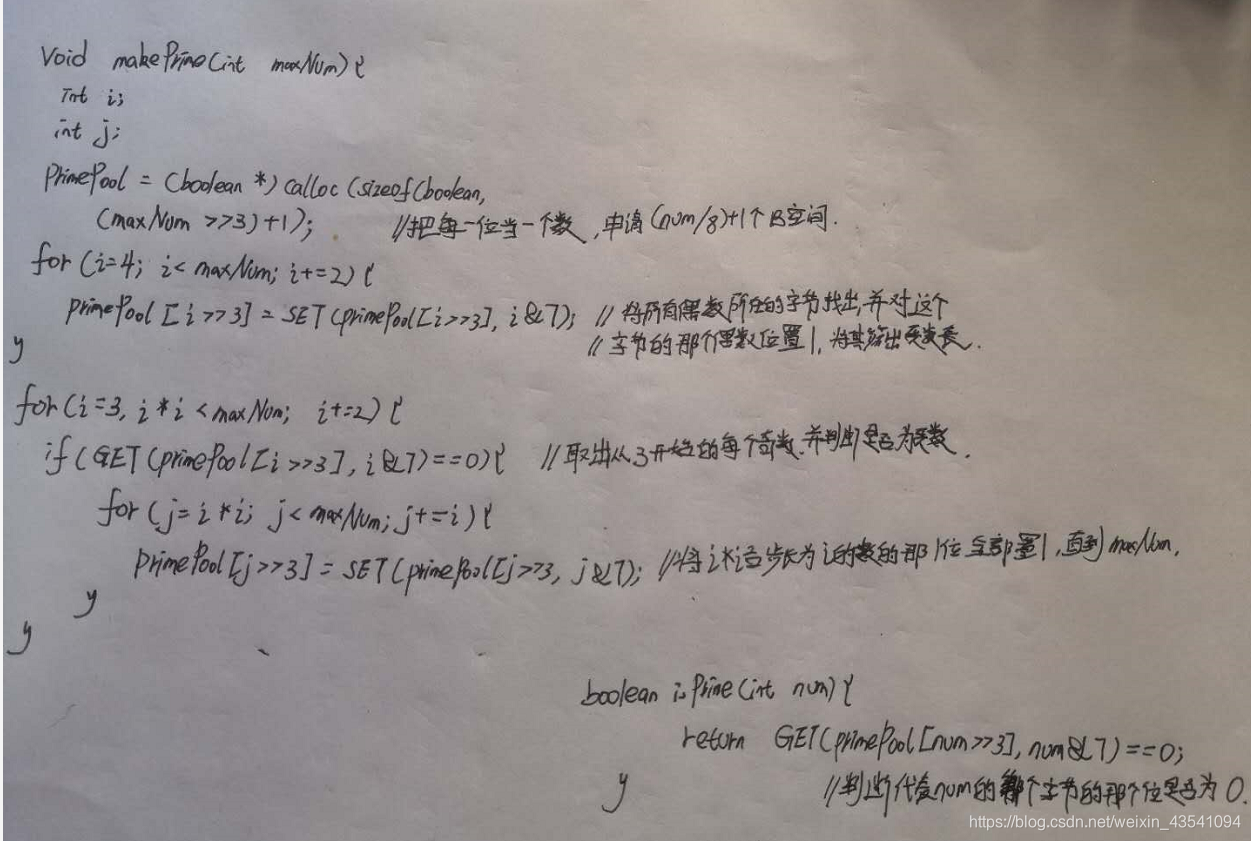 void makePrime(int maxNum){
Int i;
int j;
PrimePool = (boolean *) calloc (sizeof(boolean,
(maxNum >>3)+1); //把每一位当一个数,申请(num/8)+1个B空间.
for (i=4; i< maxNum; i+=2){
primePool[i>>3] = SET(primePool[i>>3], i&7); //将所有偶数所在的字节找出,并对这个
} //字节的那个偶数位置1,将其筛出质数表.
for(i=3, i*i <maxNum; i+=2){
if(GET(primePool[i>>3], i&7)==0){ //取出从3开始的每个奇数.并判断是否为质数.
for (j= i*i; j<maxNum; j+=i){
primePool[j>>3] = SET(primePool[j>>3, j&7); //将i*i至步长为i的数的那1位全部置1,直到maxNum,
}
}
boolean isPrime(int num){
return GET(primePool[num>>3], num&7)==0;
} //判断代表num的那个字节的那个位是否为0.
https://blog.csdn.net/weixin_43541094